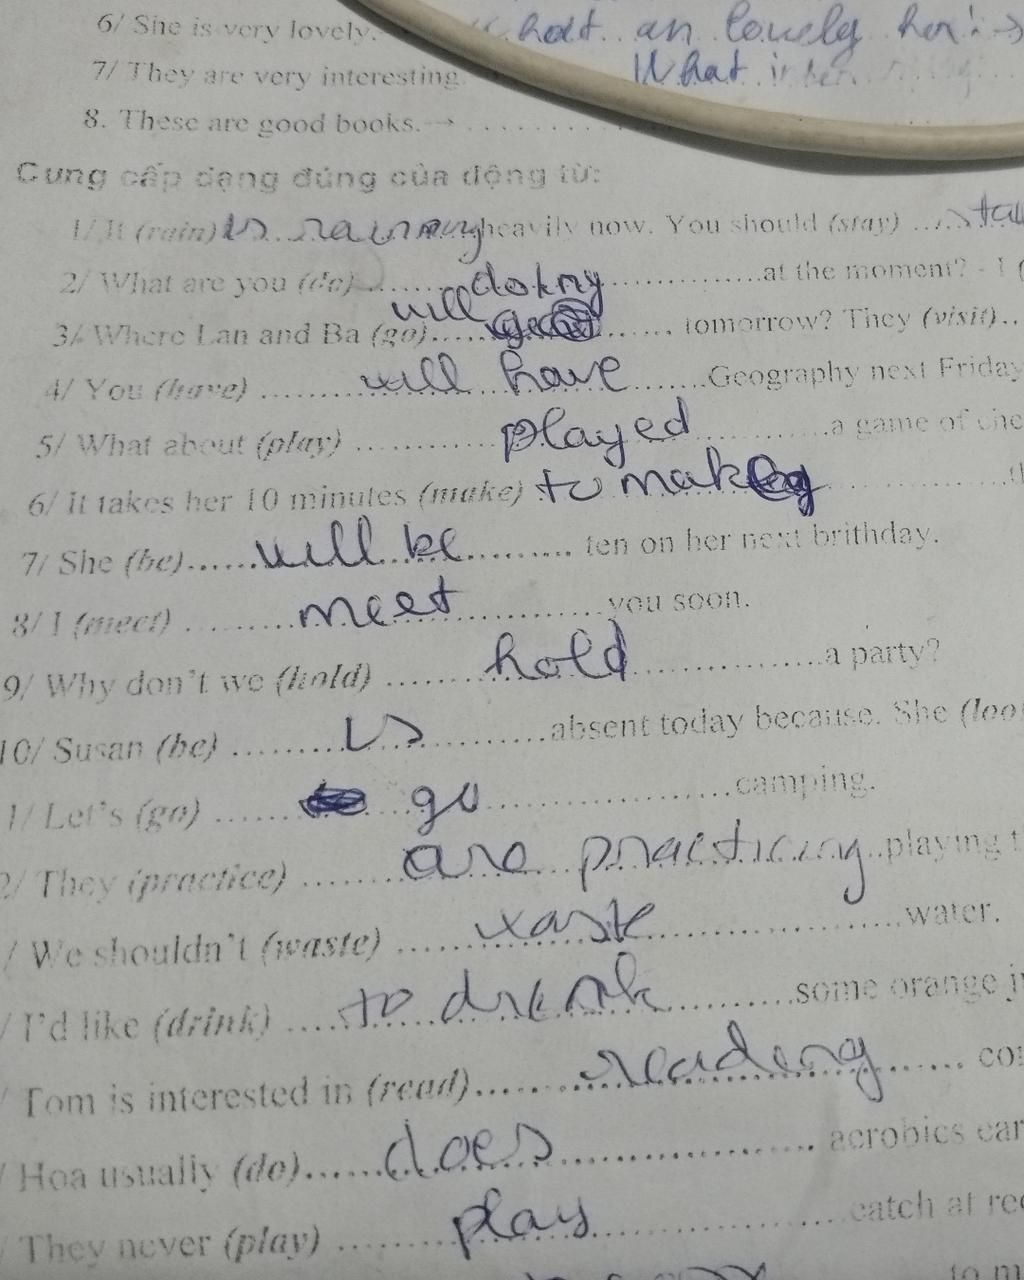 6/ She is very lovely. What an lovely her! →
7/ They are very interesting. What
8. These are good books. → ..........
Cung cấp dạng đúng của động từ:
1/ It (rain) is raining heavily now. You should (stay) ...stay
2/ What are you (do) ........doing..........at the moment? - I (
3/ Where Lan and Ba (go)....will go...... tomorrow? They (visit)...
4/ You (have) ..........will have.......Geography next Friday
5/ What about (play) ..........played............a game of che
6/ It takes her 10 minutes (make) to make ............th
7/ She (be)......will be.......... ten on her next brithday.
8/ I (meet) .........meet............you soon.
9/ Why don't we (hold) .........hold..............a party?
10/ Susan (be) .........is..........absent today because. She (loo
1/ Let's (go) ......... go.................camping.
2/ They (practice) ........are practicing..playing t
/ We shouldn't (waste) .......waste.................water.
/ I'd like (drink) ....to drink..........some orange j
/ Tom is interested in (read)......reading...... co
/ Hoa usually (do)......does.................. aerobics ear
/ They never (play) .........play................catch at rec
to m